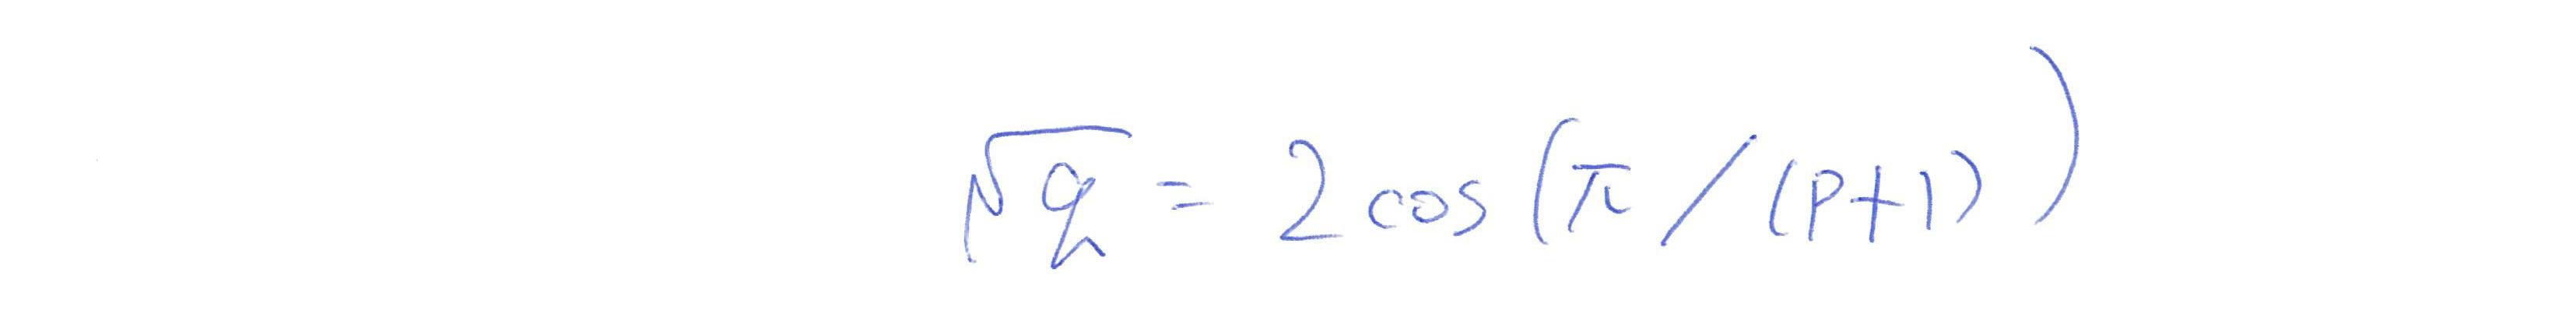 √q = 2 cos (π / (p+1))